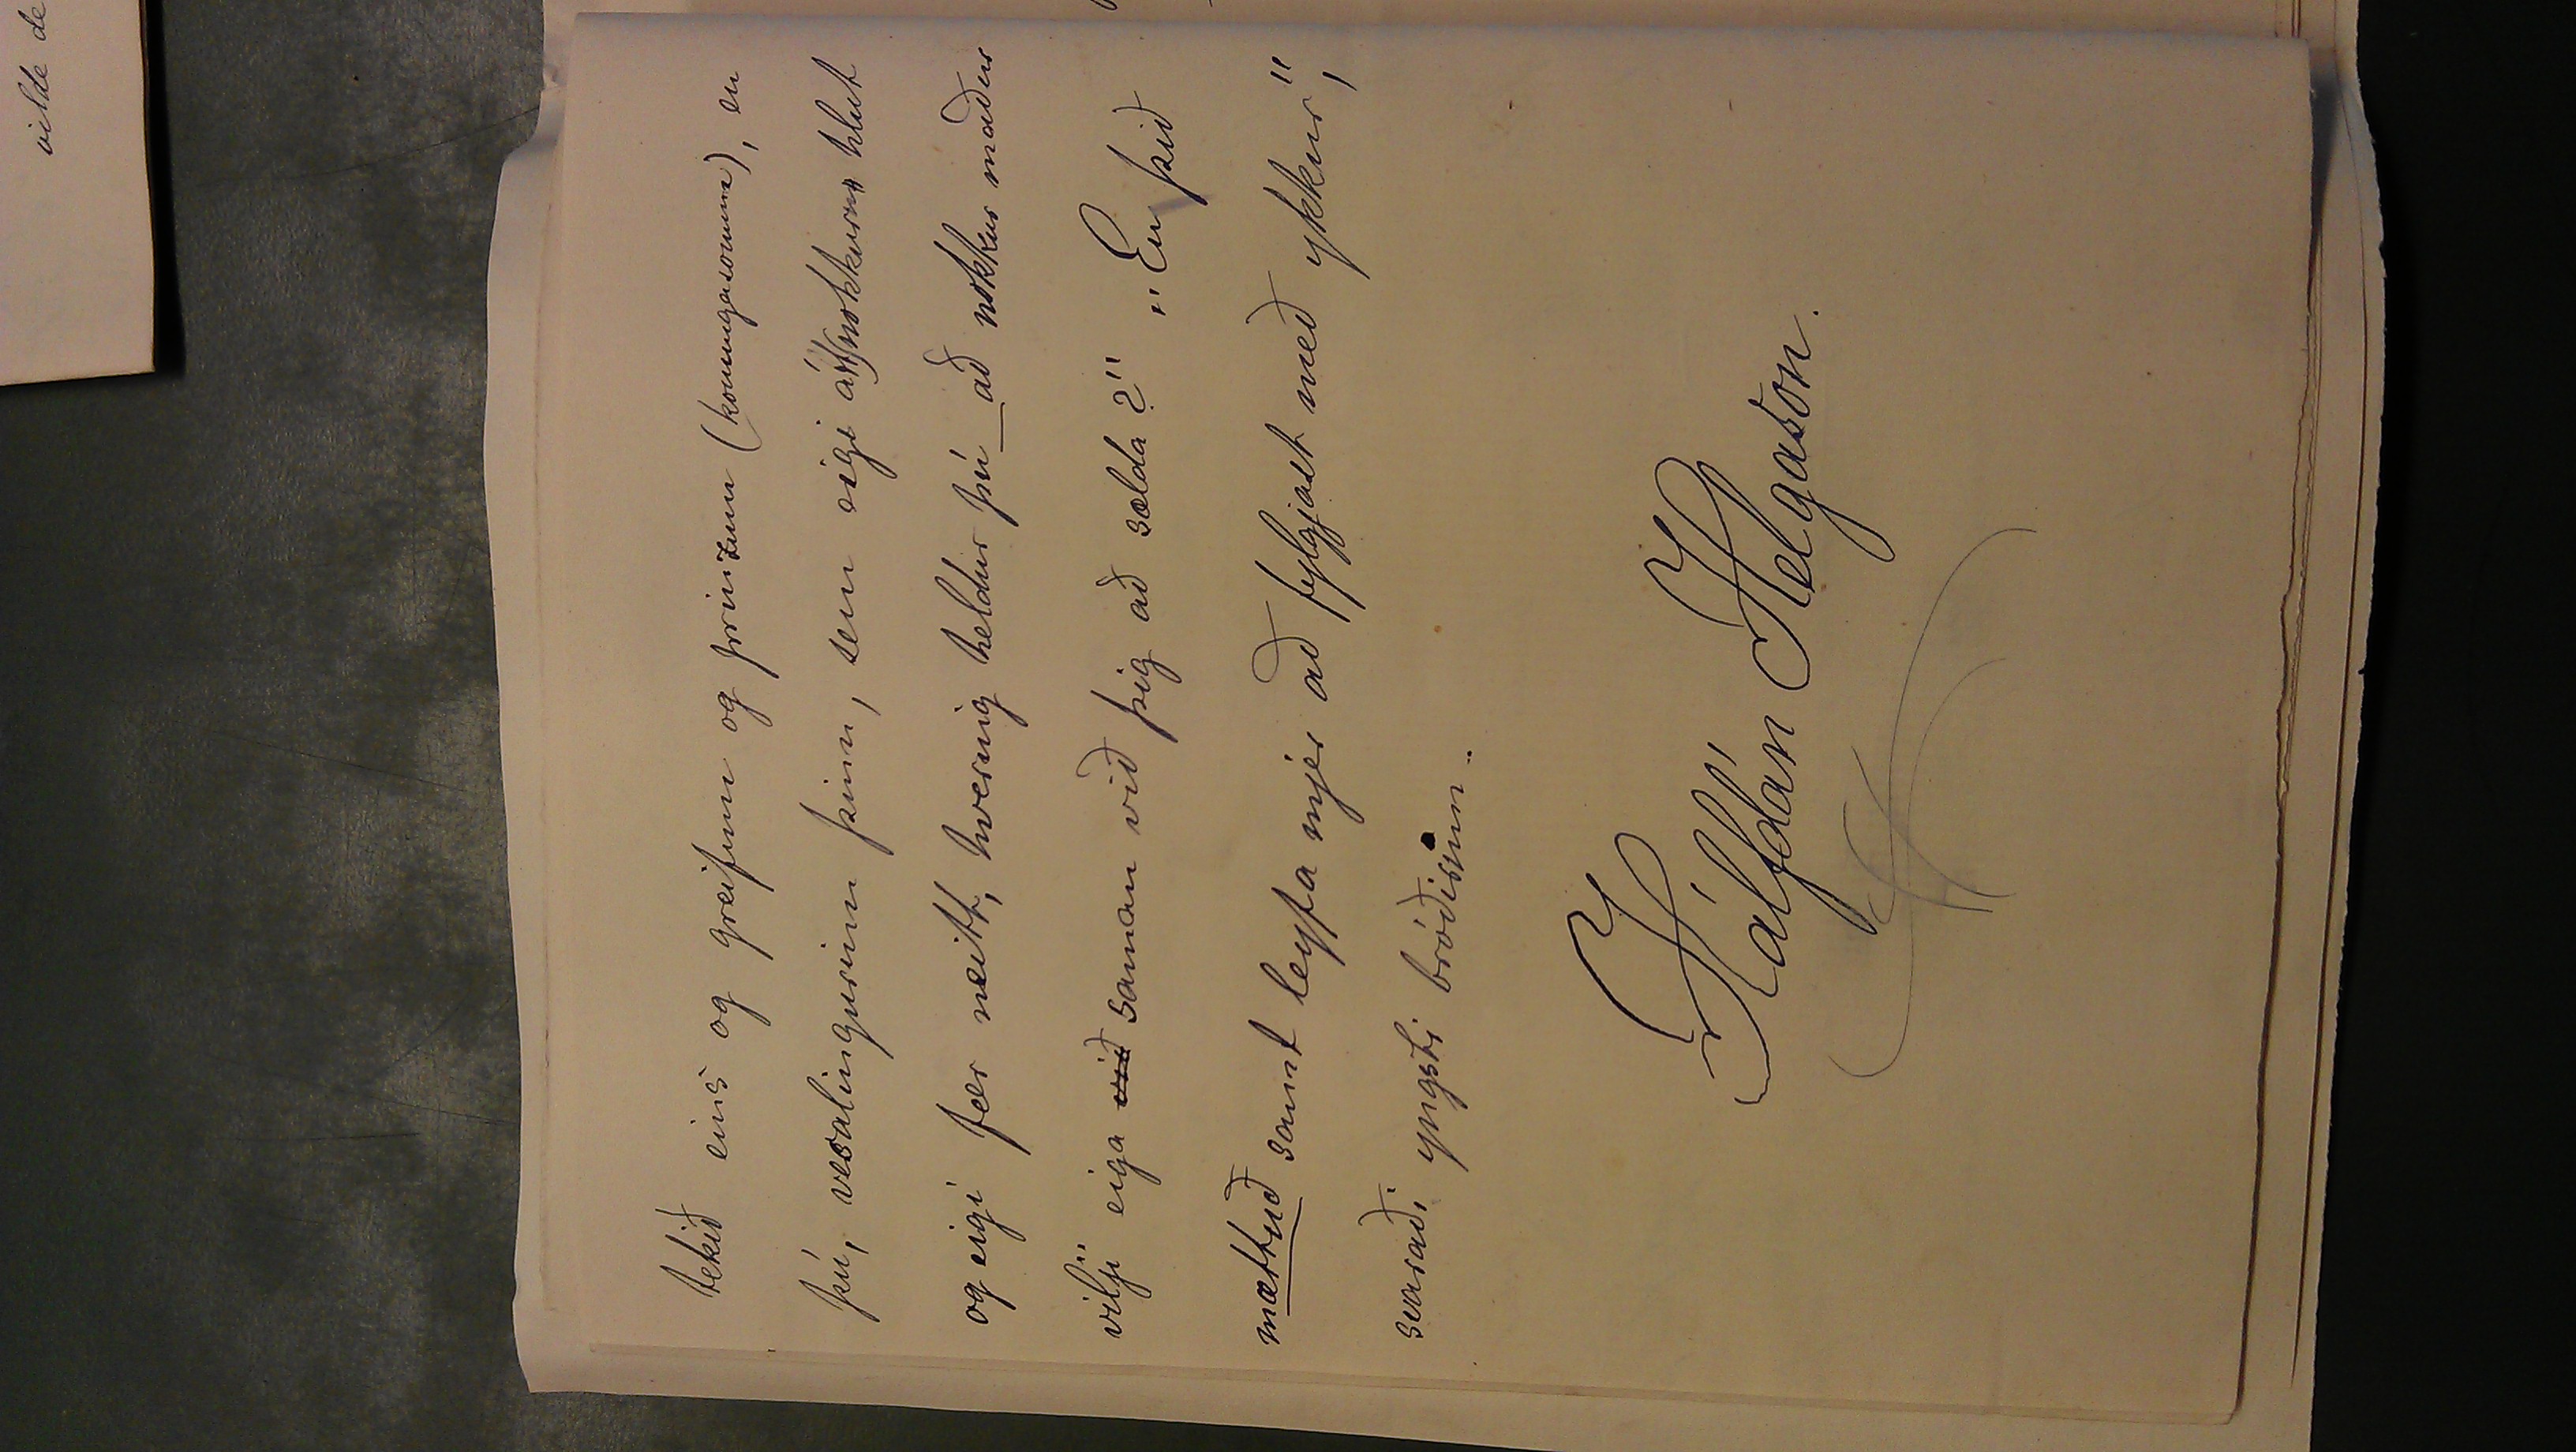 tekið eins og greifum og prinzum (konungasonum), en
þú, vesalingurinn þinn, sem eigi átt nokkurn hlut
og eigi fær neitt, hvernig heldur þú að nokkur maður
vilji eiga við saman við þig að sælda?" "En þið
mættuð samt leyfa mjer að fylgjast með ykkur",
svaraði yngsti bróðirinn.
Hálfdán Helgason.
vilde de